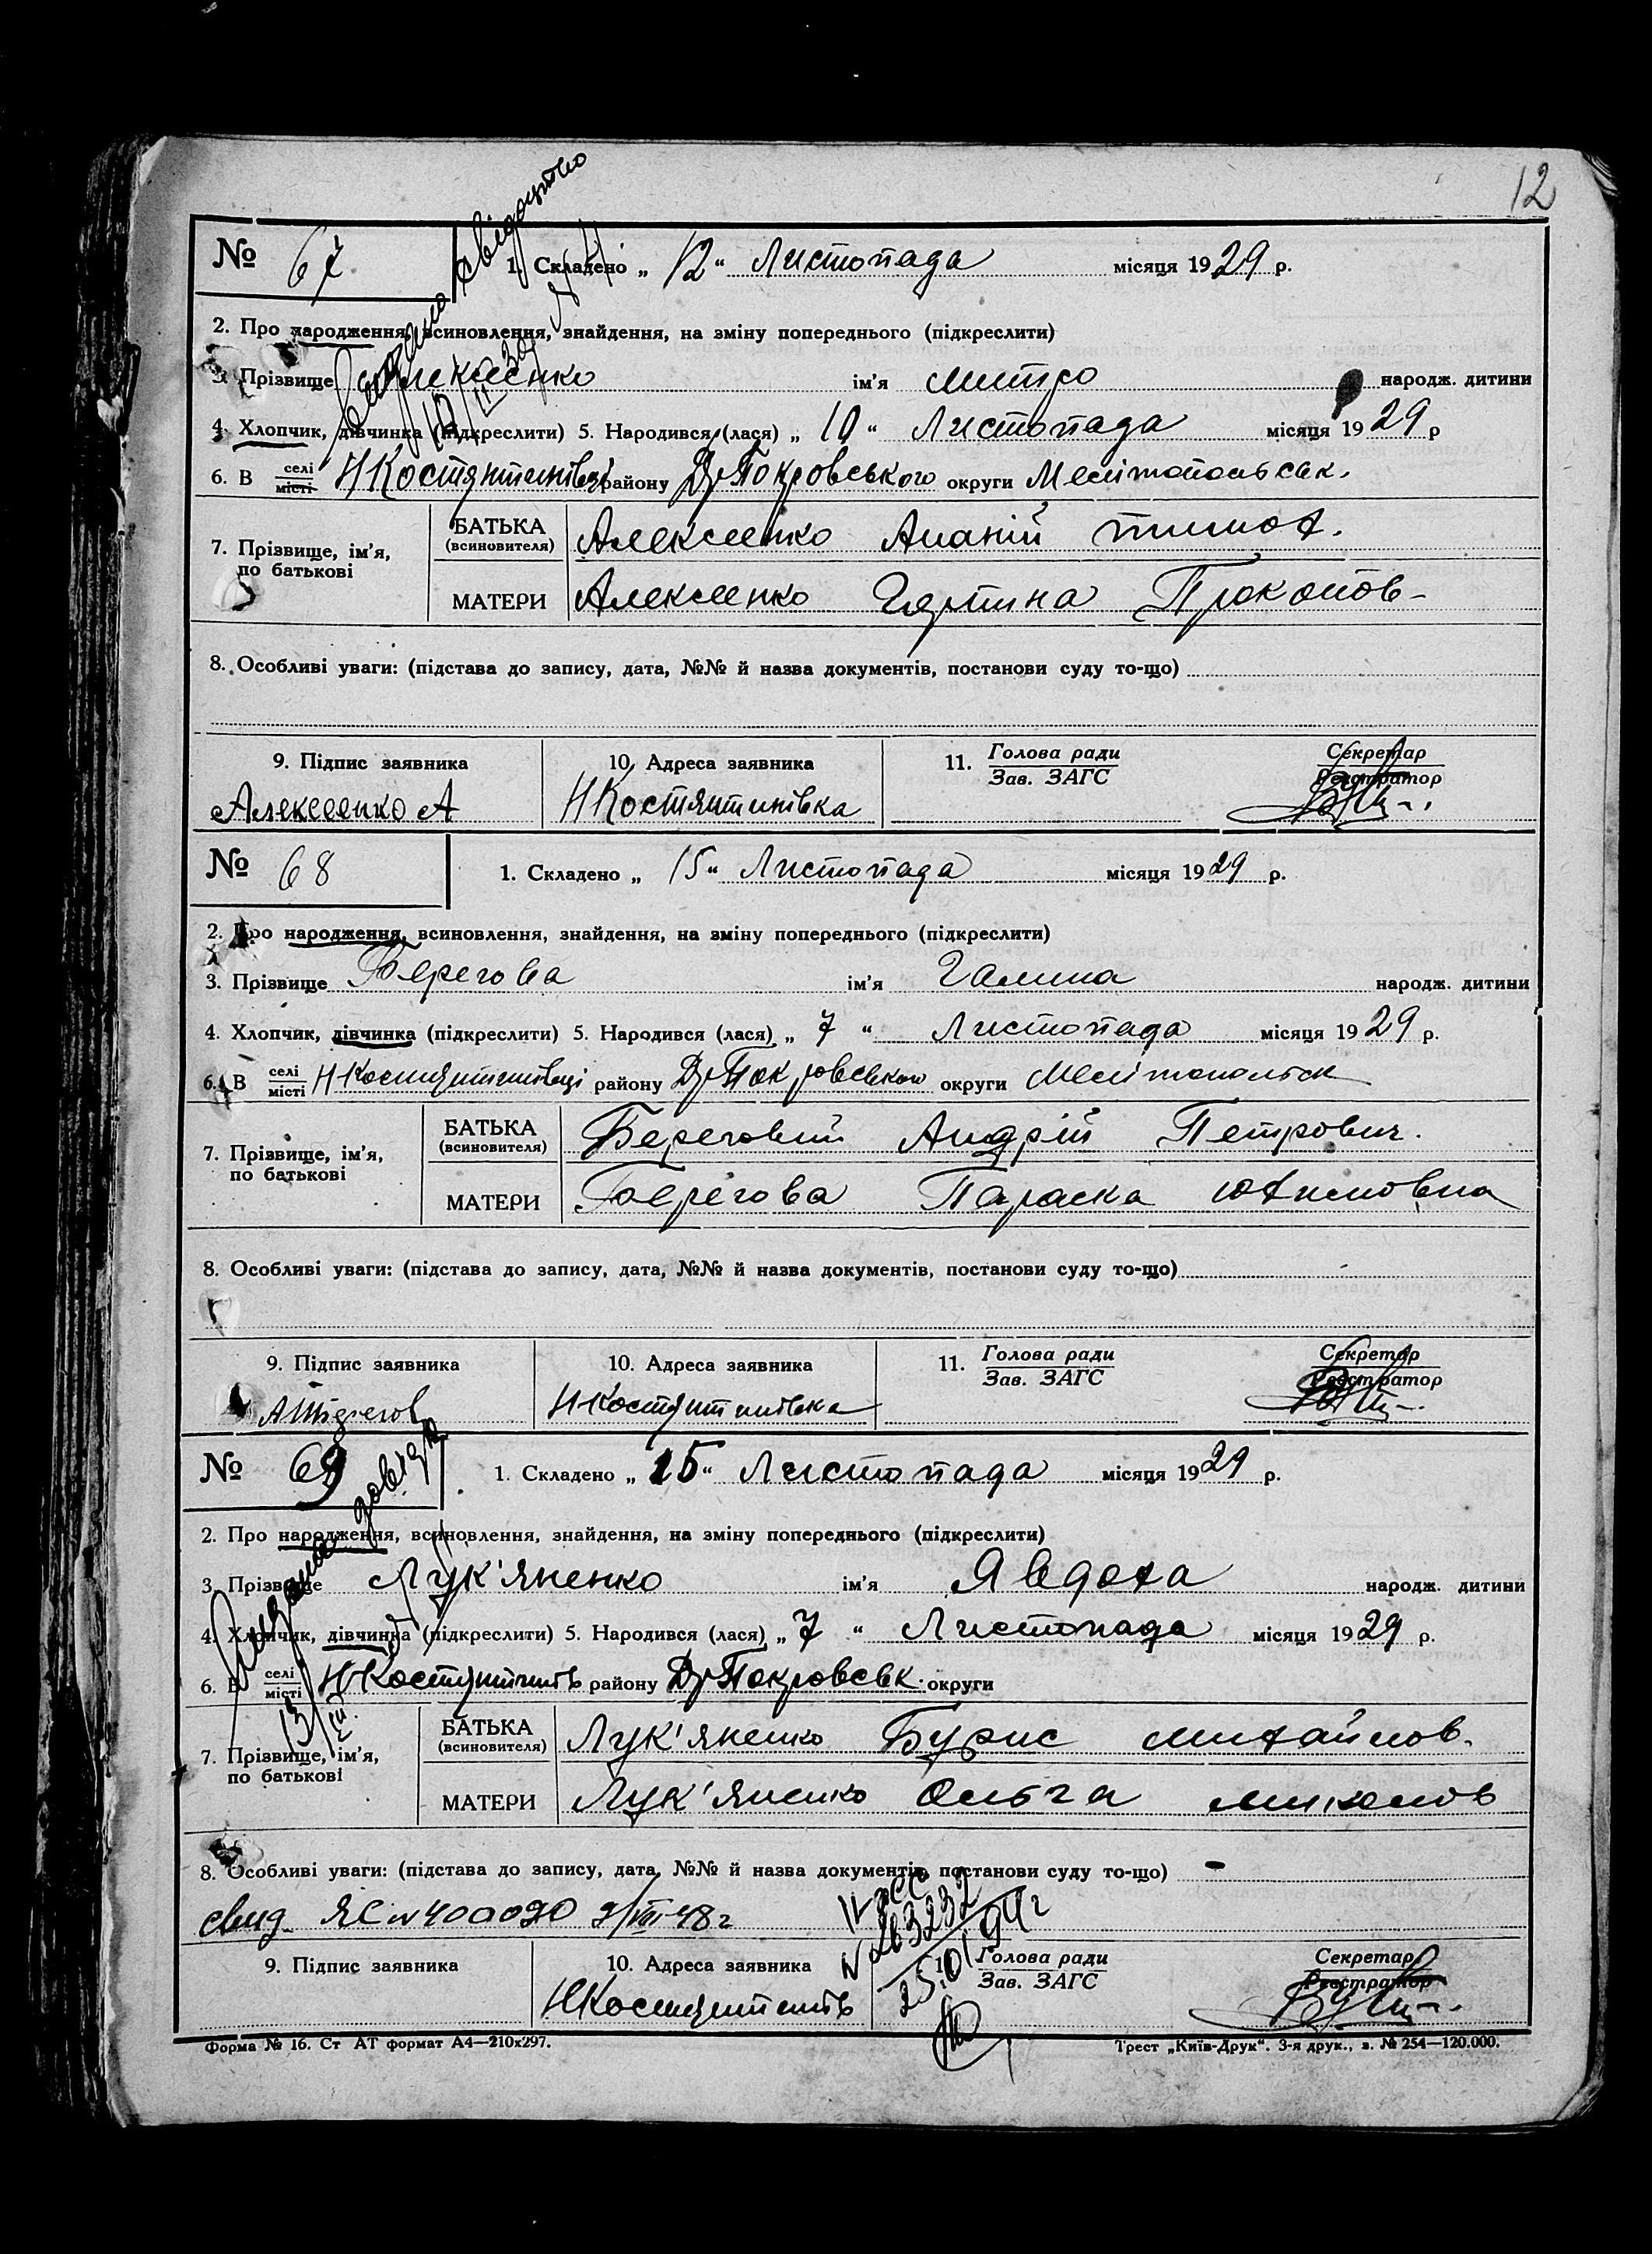 12
№ 67 1. Складено „ 12 “ Листопада місяця 1929 р.
Видано свідоцтво
2. Про народження, всиновлення, знайдення, на зміну попереднього (підкреслити)
3. Прізвище Алексеенко ім'я Митро народж. дитини
4. Хлопчик, дівчинка (підкреслити) 5. Народився (лася) „ 10 “ Листопада місяця 1929 р
6. В селі місті НКостянтинівці району В/Покровського округи Мелітопольськ.
7. Прізвище, ім'я, по батькові
БАТЬКА (всиновителя) Алексеенко Ананій Тимох.
МАТЕРИ Алексеенко Горпина Прокопов-
8. Особливі уваги: (підстава до запису, дата, №№ й назва документів, постанови суду то-що)
9. Підпис заявника 10. Адреса заявника 11. Голова ради Зав. ЗАГС Секретар Реєстратор
Алексеенко А НКостянтинівка
№ 68 1. Складено „ 15 “ Листопада місяця 1929 р.
2. Про народження, всиновлення, знайдення, на зміну попереднього (підкреслити)
3. Прізвище Берегова ім'я Галина народж. дитини
4. Хлопчик, дівчинка (підкреслити) 5. Народився (лася) „ 7 “ Листопада місяця 1929 р.
6. В селі місті НКостянтинівці району В/Покровського округи Мелітопольськ
7. Прізвище, ім'я, по батькові
БАТЬКА (всиновителя) Береговий Андрій Петрович.
МАТЕРИ Берегова Параска Юхимовна
8. Особливі уваги: (підстава до запису, дата, №№ й назва документів, постанови суду то-що)
9. Підпис заявника 10. Адреса заявника 11. Голова ради Зав. ЗАГС Секретар Реєстратор
НКостянтинівка
№ 69 1. Складено „ 15 “ Листопада місяця 1929 р.
2. Про народження, всиновлення, знайдення, на зміну попереднього (підкреслити)
3. Прізвище Лук'яненко ім'я Явдоха народж. дитини
4. Хлопчик, дівчинка (підкреслити) 5. Народився (лася) „ 7 “ Листопада місяця 1929 р.
6. В селі місті НКостянтинів району В/Покровськ. округи
7. Прізвище, ім'я, по батькові
БАТЬКА (всиновителя) Лук'яненко Бурис Михайлов.
МАТЕРИ Лук'яненко Ольга Миколов
8. Особливі уваги: (підстава до запису, дата, №№ й назва документів, постанови суду то-що)
свид. ЯС № 400090 2/VIII 48 г
№ 263232
25.01.94 г
9. Підпис заявника 10. Адреса заявника 11. Голова ради Зав. ЗАГС Секретар Реєстратор
НКостянтинів
Форма № 16. Ст АТ формат А4—210х297. Трест „Київ-Друк“. 3-я друк., з. № 254—120.000.